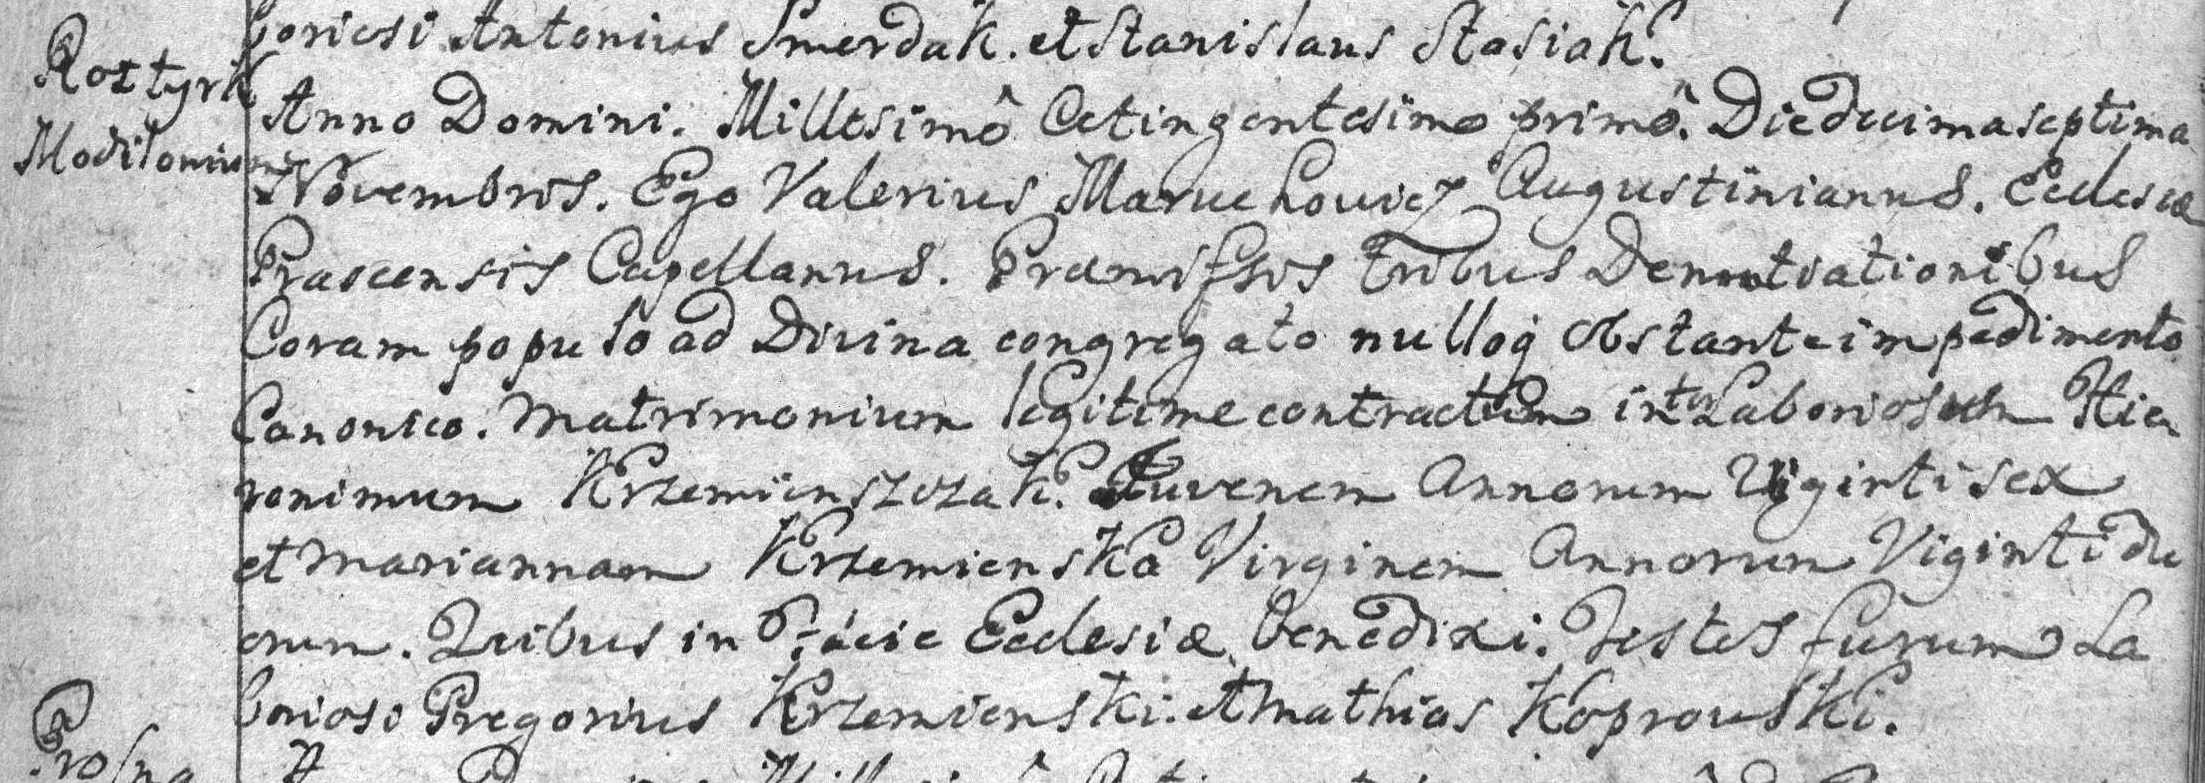 boriosi Antonius Smerdak. et Stanislaus Stasiak.
Roztyrk
Anno Domini. Millesimô Octingentesimo primô. Die decima septima
Modilonium
Novembris. Ego Valerius Maruchowicz Augustinianus. Ecclesiæ
Prascensis Capellanus. Præmissis tribus Denuntiationibus
Coram populo ad Divina congregato nulloq obstante impedimento
Canonico. Matrimonium legitime contractum inter Laboriosum Hie
ronimum Krzemienszczak. Juvenem Annorum Viginti sex
et Mariannam Krzemienska Virginem Annorum Viginti du
orum. Quibus in Facie Ecclesiæ benedixi. Testes furum La
boriosi Gregorius Krzemienski. et Mathias Koprowski.
Prosna